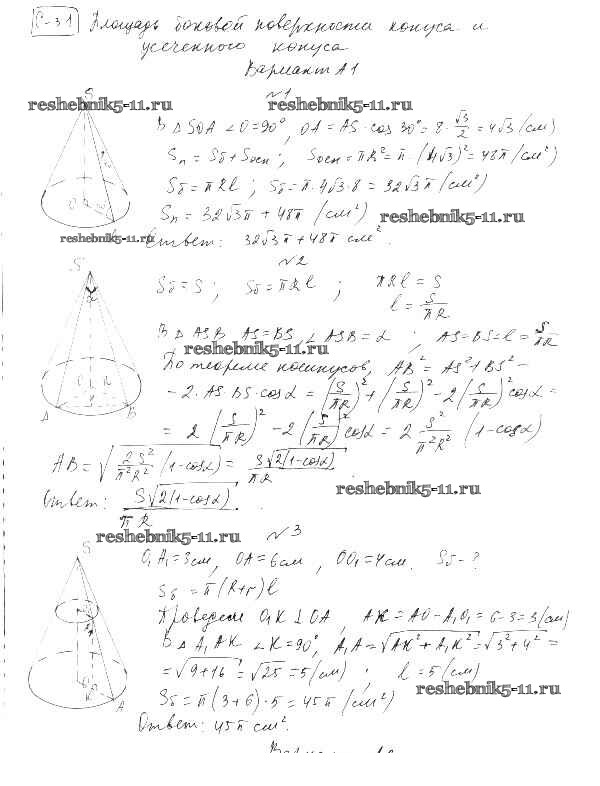 С-31 Площадь боковой поверхности конуса и
усеченного конуса
Вариант А1
№1
reshebnik5-11.ru reshebnik5-11.ru
В Δ SOA ∠O=90°, OA = AS · cos 30° = 8 · √3/2 = 4√3 (см)
Sп = Sб + Sосн ; Sосн = πR² = π (4√3)² = 48π (см²)
Sб = πRl ; Sб = π · 4√3 · 8 = 32√3π (см²)
Sп = 32√3π + 48π (см²)
reshebnik5-11.ru
reshebnik5-11.ru
Ответ: 32√3π + 48π см².
№2
Sб = S ; Sб = πRl ; πRl = S
l = S/πR
В Δ ASB AS=BS, ∠ASB = α ; AS=BS=l = S/πR
reshebnik5-11.ru
По теореме косинусов, AB² = AS² + BS² −
− 2 · AS · BS · cosα = (S/πR)² + (S/πR)² − 2(S/πR)² cosα =
= 2 (S/πR)² − 2 (S/πR)² cosα = 2 S²/π²R² (1 − cosα)
AB = √(2S²/π²R² (1 − cosα)) = S√(2(1−cosα))/πR
Ответ: S√(2(1−cosα))/πR.
reshebnik5-11.ru
reshebnik5-11.ru
№3
O₁A₁ = 3 см, OA = 6 см, OO₁ = 4 см. Sб − ?
Sб = π(R+r)l
Проведем A₁K ⊥ OA, AK = AO − A₁O₁ = 6 − 3 = 3 (см)
В Δ A₁AK ∠K = 90°, A₁A = √(AK² + A₁K²) = √(3² + 4²) =
= √(9+16) = √25 = 5 (см) ; l = 5 (см)
reshebnik5-11.ru
Sб = π (3+6) · 5 = 45π (см²)
Ответ: 45π см².